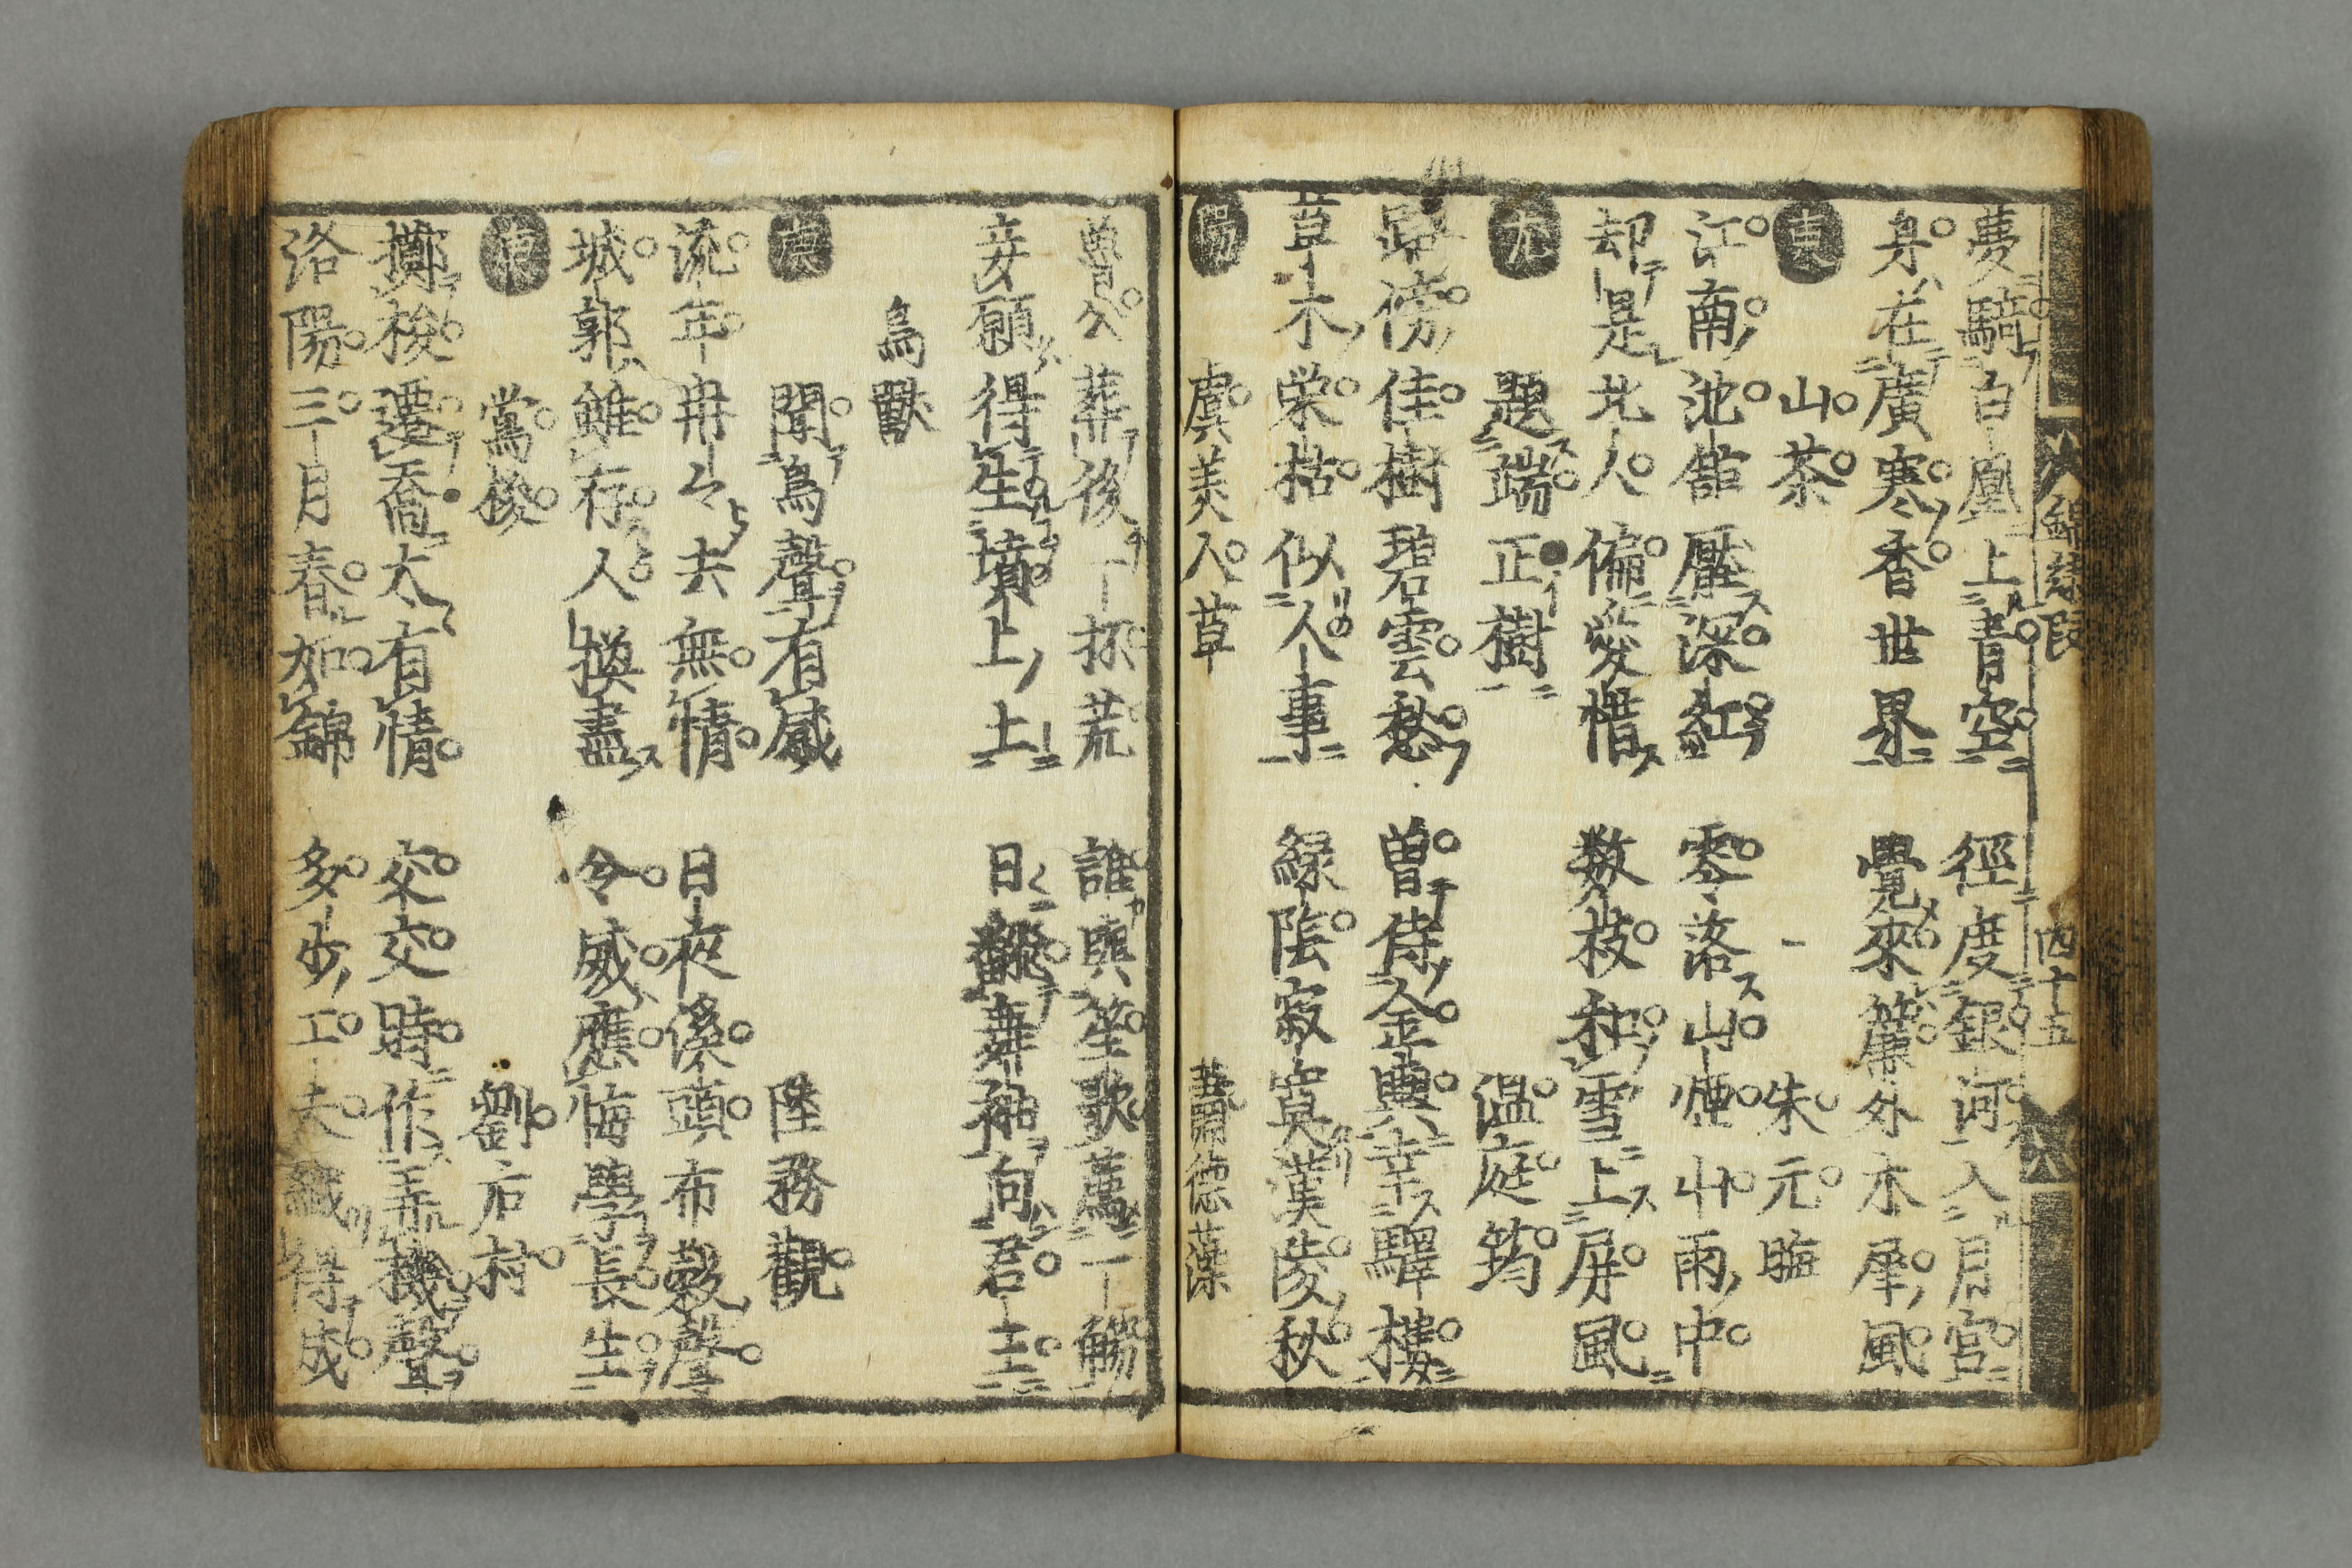 夢騎白凰上青空 徑度銀河入月宮
身在廣寒香世界 覺來簾外木犀風
東 山茶 朱元臨
江南池館壓深紅 零落山煙山雨中
却是北人偏愛惜 数枝和雪上屏風
尤 題端正樹 温庭筠
路傍佳樹碧雲愁 曽侍金輿幸驛樓
草木栄枯似人事 緑陰寂寞漢陵秋
陽 虞美人草 蕭德藻
魯公葬後一抔荒 誰與笙歌薦一觴
妾願得生墳上土 日翻舞袖向君王
鳥獣
庚 聞鳥聲有感 陸務觀
流年冉々去無情 日夜溪頭布穀聲
城郭雖存人換盡 令威應悔學長生
庚 鶯梭 劉后村
擲梭遷喬太有情 交交時作弄機聲
洛陽三月春如錦 多少工夫織得成
錦繡段 四十五